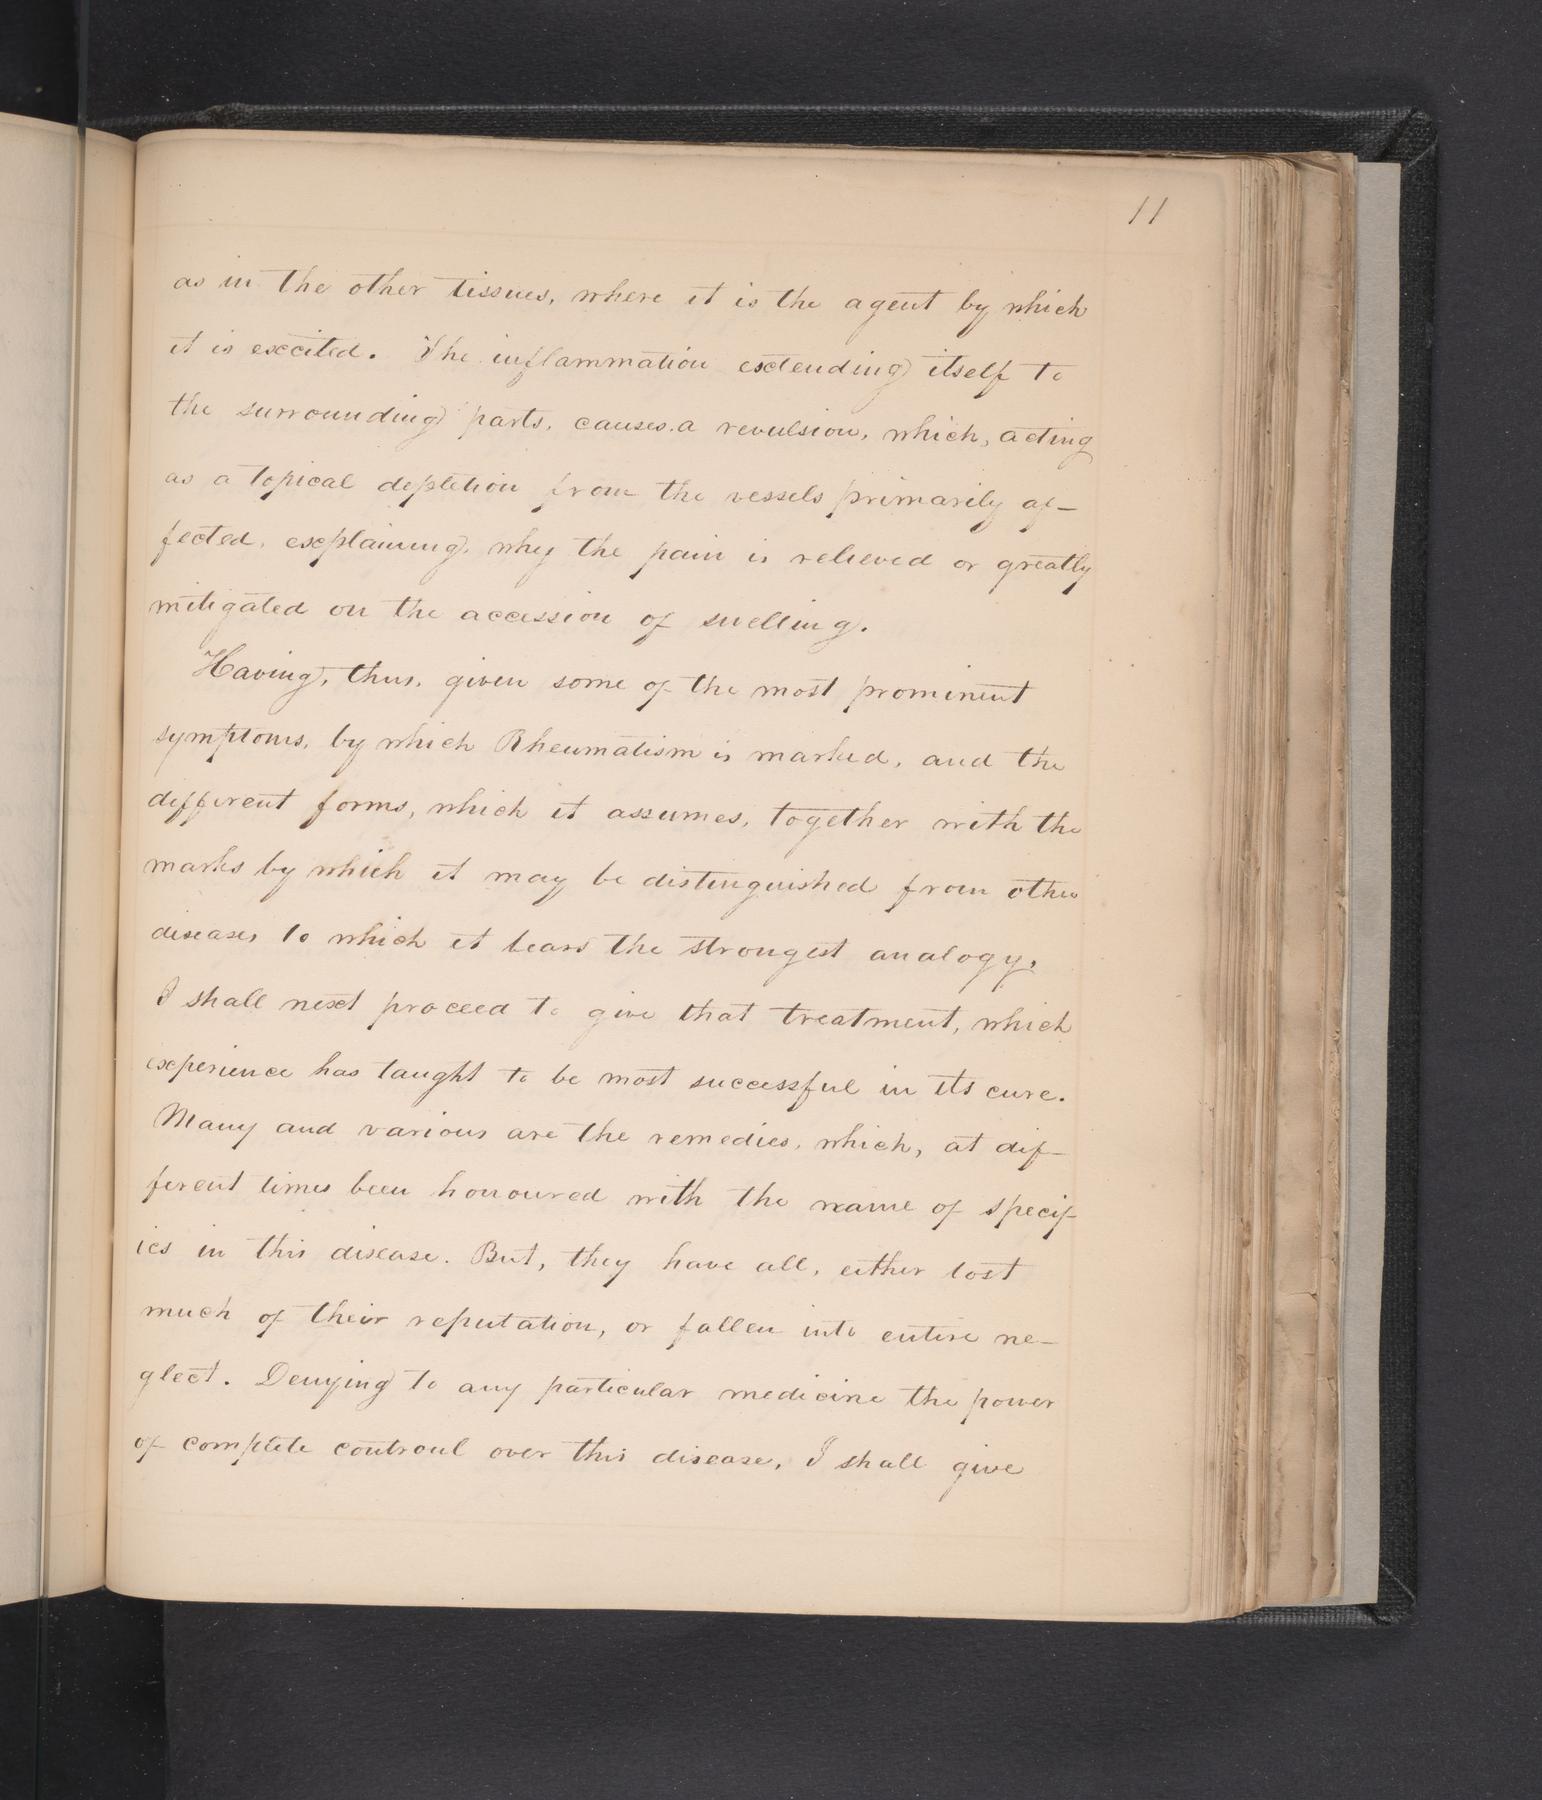 11
as in the other tissues, where it is the agent by which
it is excited. The inflammation extending itself to
the surrounding parts, causes a revulsion, which, acting
as a topical depletion from the vessels primarily af-
fected, explaining, why the pain is relieved or greatly
mitigated on the accession of swelling.
Having, thus, given some of the most prominent
symptoms, by which Rheumatism is marked, and the
different forms, which it assumes, together with the
marks by which it may be distinguished from other
diseases to which it bears the strongest analogy,
I shall next proceed to give that treatment, which
experience has taught to be most successful in its cure.
Many and various are the remedies, which, at dif-
ferent times been honoured with the name of specif-
ics in this disease. But, they have all, either lost
much of their reputation, or fallen into entire ne-
glect. Denying to any particular medicine the power
of complete controul over this disease, I shall give